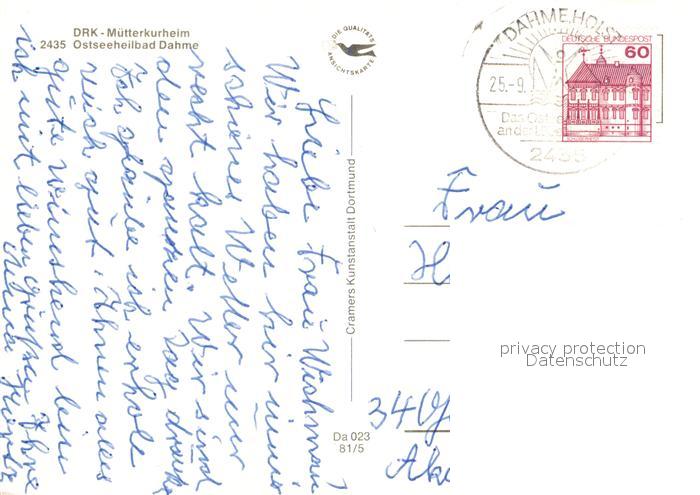 DRK - Mütterkurheim
2435 Ostseeheilbad Dahme
DIE QUALITÄTS
ANSICHTSKARTE
Liebe Frau Wichman!
Wir haben hir immer
schönes Wetter nur
recht kalt. Wir sind
den ganzen Tag draußen
Ich glaube ich erhole
mich gut. Ihnen alles
gute wünschend bin
ich mit lieben Grüßen Ihre
Cramers Kunstanstalt Dortmund
Da 023
81/5
DAHME, HOLST
25.-9.
Das Ost
an der
2435
DEUTSCHE BUNDESPOST
60
Frau
H
34
privacy protection
Datenschutz